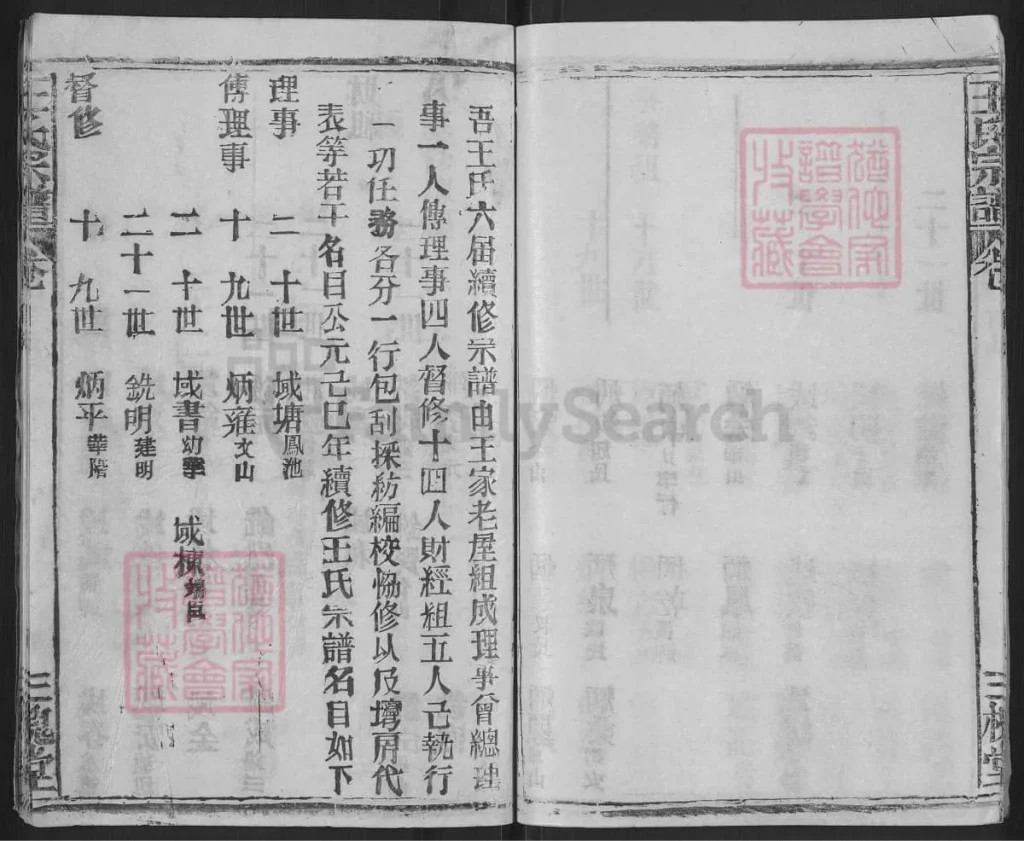 王氏宗譜
卷
三槐堂
吾王氏六届續修宗譜由王家老屋組成理事會總理
事一人傳理事四人督修十四人財經組五人已執行
一切任務各分一行包刮採紡編校恊修以及塆房代
表等若干名目公元己巳年續修王氏宗譜名目如下
理事 二十世 域塘鳳池
傳理事 十九世 炳雍文山
二十世 域書幼學 域棟
二十一世 銑明建明
督修 十九世 炳平華階
三槐堂
FamilySearch